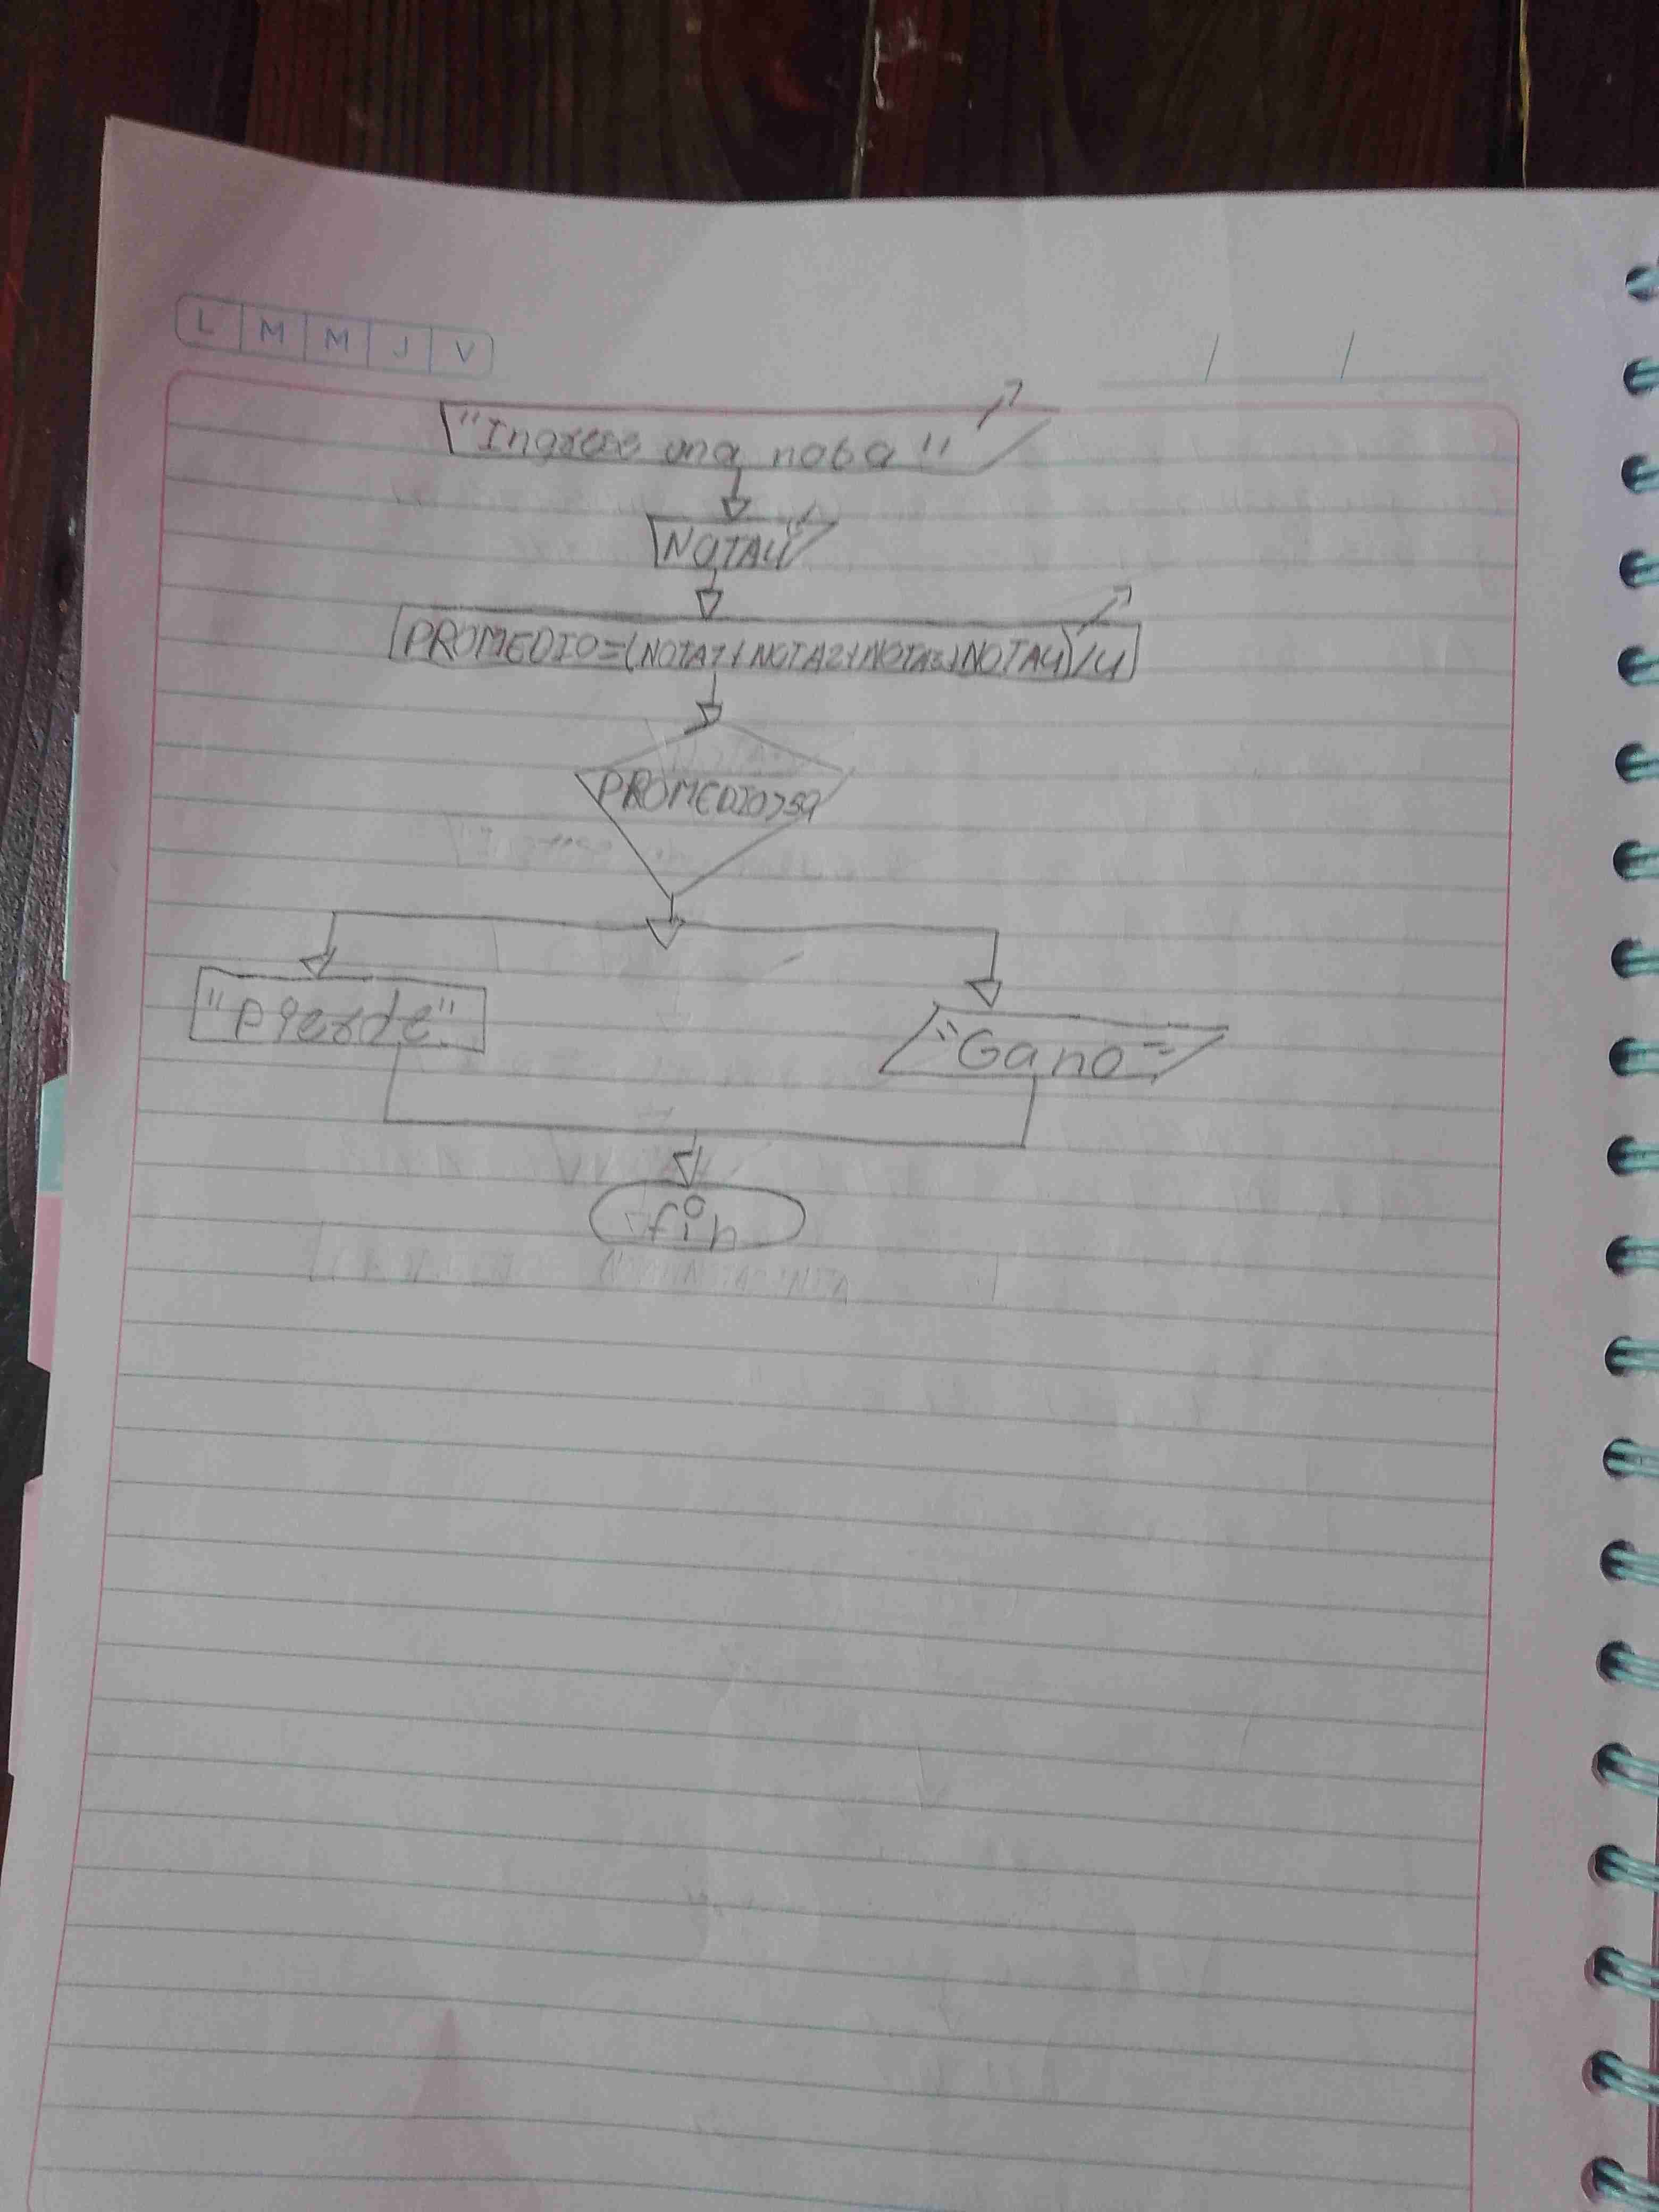 L M M J V
/ /
"Ingrese una nota"
NOTA4
PROMEDIO=(NOTA1+NOTA2+NOTA3+NOTA4)/4
PROMEDIO>59
"Pierde" "Gano"
fin